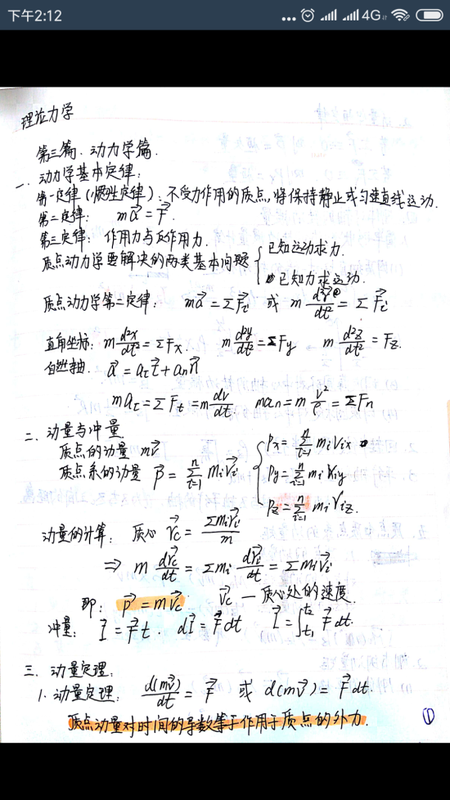 下午2:12
... 4G
理论力学
第三篇.动力学篇.
一. 动力学基本定律:
第一定律(惯性定律): 不受力作用的质点,将保持静止或匀速直线运动.
第二定律: ma⃗ = F⃗.
第三定律: 作用力与反作用力.
质点动力学要解决的两类基本问题 { 已知运动求力
已知力求运动.
质点动力学第二定律: ma⃗ = ΣF⃗ᵢ 或 m d²r⃗/dt² = ΣF⃗ᵢ
直角坐标: m d²x/dt² = ΣFx. m d²y/dt² = ΣFy m d²z/dt² = Fz.
自然轴. a⃗ = aₜt⃗ + aₙn⃗
maₜ = ΣFₜ = m dv/dt maₙ = m v²/ρ = ΣFₙ
二. 动量与冲量
质点的动量 mv⃗
质点系的动量 P⃗ = Σⁿᵢ₌₁ mᵢv⃗ᵢ { Px = Σⁿᵢ₌₁ mᵢvᵢx
Py = Σⁿᵢ₌₁ mᵢvᵢy
Pz = Σⁿᵢ₌₁ mᵢvᵢz.
动量的计算: 质心 r⃗c = Σmᵢr⃗ᵢ/m
⇒ m dr⃗c/dt = Σmᵢ dr⃗ᵢ/dt = Σmᵢv⃗ᵢ
即: P⃗ = mv⃗c v⃗c — 质心处的速度.
冲量: I⃗ = F⃗t. dI⃗ = F⃗dt I⃗ = ∫ₜ₁ᵗ² F⃗dt.
三. 动量定理:
1. 动量定理: d(mv⃗)/dt = F⃗ 或 d(mv⃗) = F⃗dt.
质点动量对时间的导数等于作用于质点的外力. ①